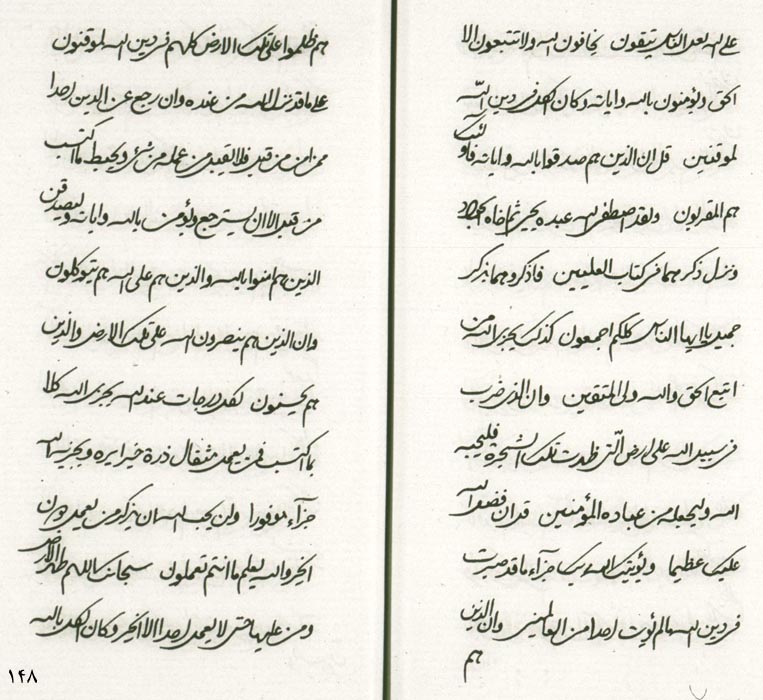 على الله بعد الناس يتقون يخافون الله ولا يتبعون الا
الحق ويؤمنون بالله واياته وكان الكل في دين الله
لموقنين قل ان الذين هم صدقوا بالله واياته فاولئك
هم المقربون ولقد اصطفى الله عبده يحيى ثم اخاه الجواد
ونزل ذكرهما في كتاب العليين فاذكروهما بذكر
جميل يا ايها الناس كلكم اجمعون كذلك يجزى الله من
اتبع الحق والله ولى المتقين وان الذي ضرب
في سبيل الله على ارض التي ظهرت تلك الشجرة فليحبه
الله وليجعله من عباده المؤمنين قد ان فضل الله
عليك عظيما ويؤتيك الله ربك جزآء ما قد صبرت
في دين الله ما لم يؤت احدا من العالمين وان الذين
هم
هم ظلموا على تلك الارض كلهم في دين الله لموقنون
على ما قد نزل الله من عنده وان رجع عن الدين احدا
ممن امن من قبل فلا يقبل من عمله من شئ ويحيط ما اكتسب
من قبل الا ان يسترجع ويؤمن بالله واياته وليصدقن
الذين هم امنوا بالله والذين هم على الله هم يتوكلون
وان الذين هم ينصرون الله على تلك الارض والذين
هم يحسنون لكل درجات عند الله يجزى الله كلا
بما اكتسب فمن يعمل مثقال ذرة خيرا يره ويجزيه الله
جزآء موفورا ولن يحب الله ان يذكر من يعمل دون
الخير والله يعلم ما انتم تعملون سبحانك اللهم طهر الارض
ومن عليها حتى لا يعمل احدا الا الخير وكان الكل بالله
١۴٨